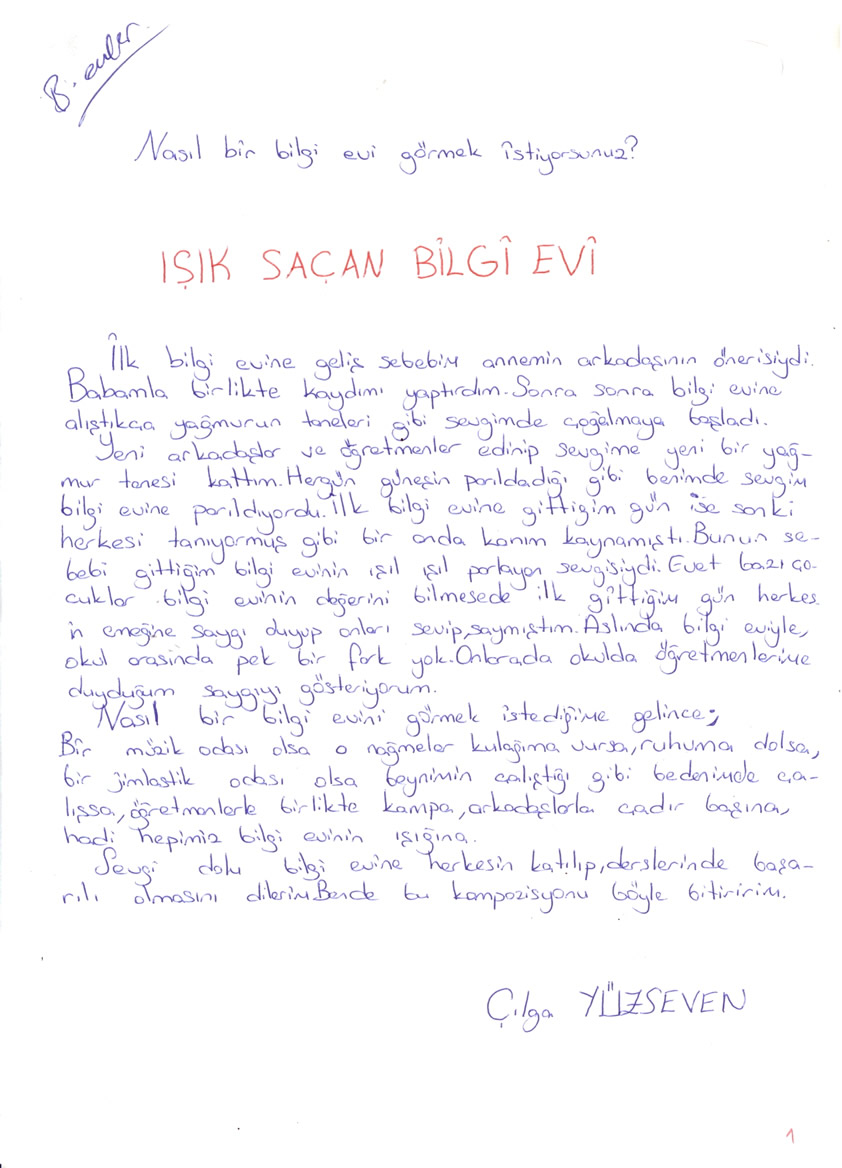 B. evler
Nasıl bir bilgi evi görmek istiyorsunuz?
IŞIK SAÇAN BİLGİ EVİ
İlk bilgi evine geliş sebebim annemin arkadaşının önerisiydi.
Babamla birlikte kaydımı yaptırdım. Sonra sonra bilgi evine
alıştıkça yağmurun taneleri gibi sevgimde çoğalmaya başladı.
Yeni arkadaşlar ve öğretmenler edinip sevgime yeni bir yağ-
mur tanesi kattım. Hergün güneşin parıldadığı gibi benimde sevgim
bilgi evine parıldıyordu. İlk bilgi evine gittiğim gün ise sanki
herkesi tanıyormuş gibi bir anda kanım kaynamıştı. Bunun se-
bebi gittiğim bilgi evinin ışıl ışıl parlayan sevgisiydi. Evet bazı ço-
cuklar bilgi evinin değerini bilmesede ilk gittiğim gün herkes
in emeğine saygı duyup onları sevip, saymıştım. Aslında bilgi eviyle,
okul arasında pek bir fark yok. Onlarada okulda öğretmenlerime
duyduğum saygıyı gösteriyorum.
Nasıl bir bilgi evini görmek istediğime gelince;
Bir müzik odası olsa o nağmeler kulağıma vursa, ruhuma dolsa,
bir jimlastik odası olsa beynimin çalıştığı gibi bedenimde ça-
lışsa, öğretmenlerle birlikte kampa, arkadaşlarla çadır başına,
hadi hepimiz bilgi evinin ışığına.
Sevgi dolu bilgi evine herkesin katılıp, derslerinde başa-
rılı olmasını dilerim. Bende bu kompozisyonu böyle bitiririm.
Çılga YÜZSEVEN
1